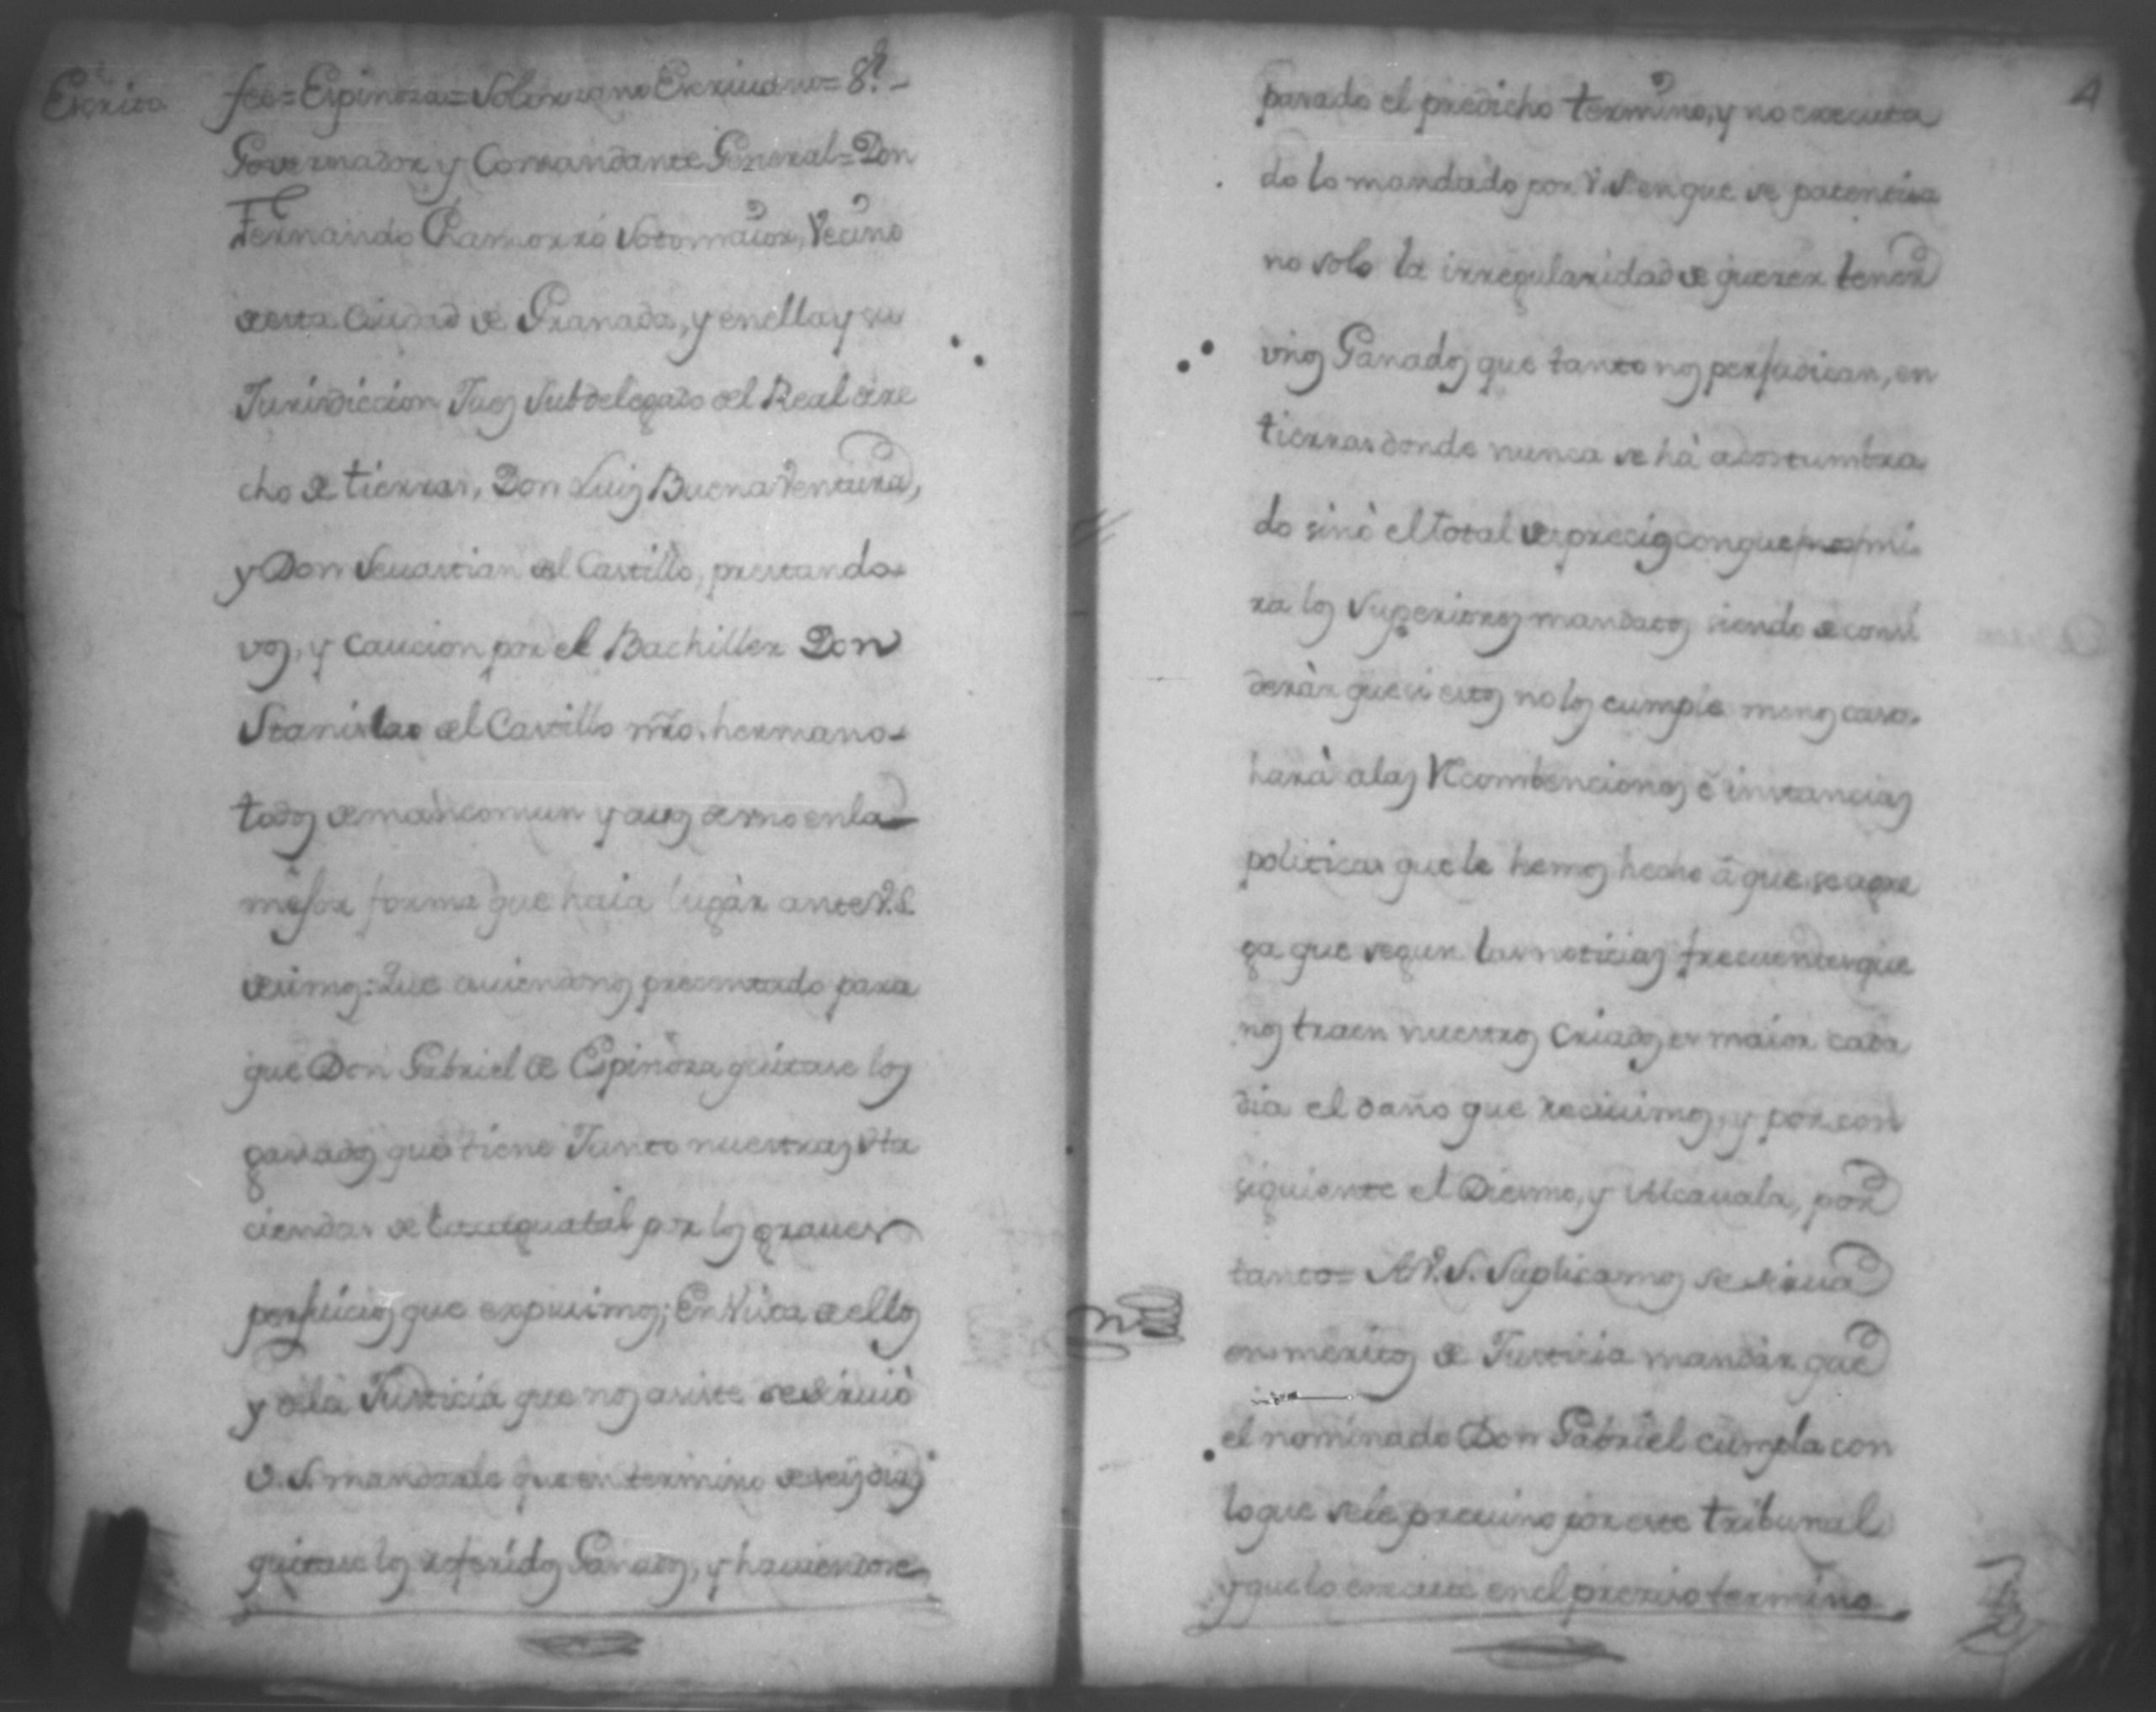 Escrito
fee=Espinoza=Solorzano Escriuano=S.r
Governador y Comandante General=Don
Fernando Chamorro Sotomaior, Vecino
de esta Ciudad de Granada, y en ella y su
Jurisdiccion Jues Subdelegado del Real dere
cho de tierras, Don Luis Buena Ventura,
y Don Seuastian del Castillo, prestando
vos, y caucion por el Bachiller Don
Stanislao del Castillo nro. hermano
todos de mancomun y a vos de uno en la
mejor forma que haia lugàr ante V.S.
desimos: Que auiendonos presentado para
que Don Gabriel de Espinoza quitase los
ganados que tiene Junto nuestras Ha
ciendas de por los graues
perjuicios que expusimos; En Vista de ellos
y de la Justicia que nos asiste se siruiò
V.S. mandarle que en termino de seis dias
quitase los referidos Ganados, y hauiendose
4
pasado el predicho termino, y no executa
do lo mandado por V.S. en que se patentisa
no solo la irregularidad de querer tener
unos Ganados que tanto nos perjudican, en
tierras donde nunca se hà acostumbra
do sinò el total desprecio con que mi
ra los Superiores mandatos siendo de consi
deràr que si estos no los cumple menos caso
harà a las Recombenciones è instancias
politicas que le hemos hecho â que
ga que segun las noticias frecuentes que
nos traen nuestros Criados es maior cada
dia el daño que reciuimos, y por con
siguiente el Diesmo, y Alcauala, por
tanto= A V.S. Suplicamos se sirua
en meritos de Justicia mandàr que
el nominado Don Gabriel cumpla con
lo que se le preuino por este tribunal
y que lo execute en el preciso termino